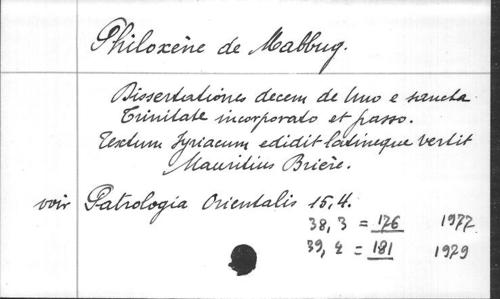 Philoxène de Mabbug.
Dissertationes decem de Uno e sancta
Trinitate incorporato et passo.
Textum Syriacum edidit latineque vertit
Mauritius Brière.
voir Patrologia Orientalis 15,4.
38, 3 = 176 1977
39, 4 = 181 1979